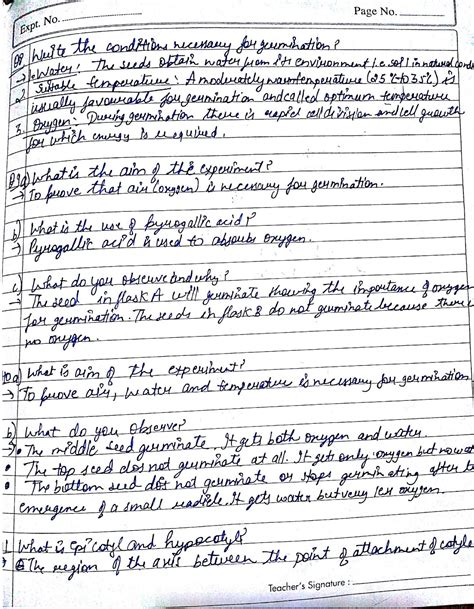 Expt. No.
Page No.
Q8 Write the conditions necessary for germination?
→ 1. Water: The seeds obtain water from its environment i.e. soil in natural cond
2. Suitable temperature: A moderately warm temperature (25°C to 35°C) is
usually favourable for germination and called optimum temperature
3. Oxygen: During germination there is rapid cell division and cell growth
for which energy is required.
Q9 a) What is the aim of the experiment?
→ To prove that air (oxygen) is necessary for germination.
b) What is the use of pyrogallic acid?
→ Pyrogallic acid is used to absorbs oxygen.
c) What do you observe and why?
→ The seed in flask A will germinate showing the importance of oxygen
for germination. The seeds in flask B do not germinate because there
no oxygen.
10 a) What is aim of the experiment?
→ To prove air, water and temperature is necessary for germination
b) What do you observe?
→ • The middle seed germinate. It gets both oxygen and water.
• The top seed does not germinate at all. It gets only oxygen but no wat
• The bottom seed dot not germinate or stops germinating after
emergence of a small radicle. It gets water but very less oxygen.
What is Epicotyl and hypocotyl?
The region of the axis between the point of attachment of cotyle
Teacher's Signature :